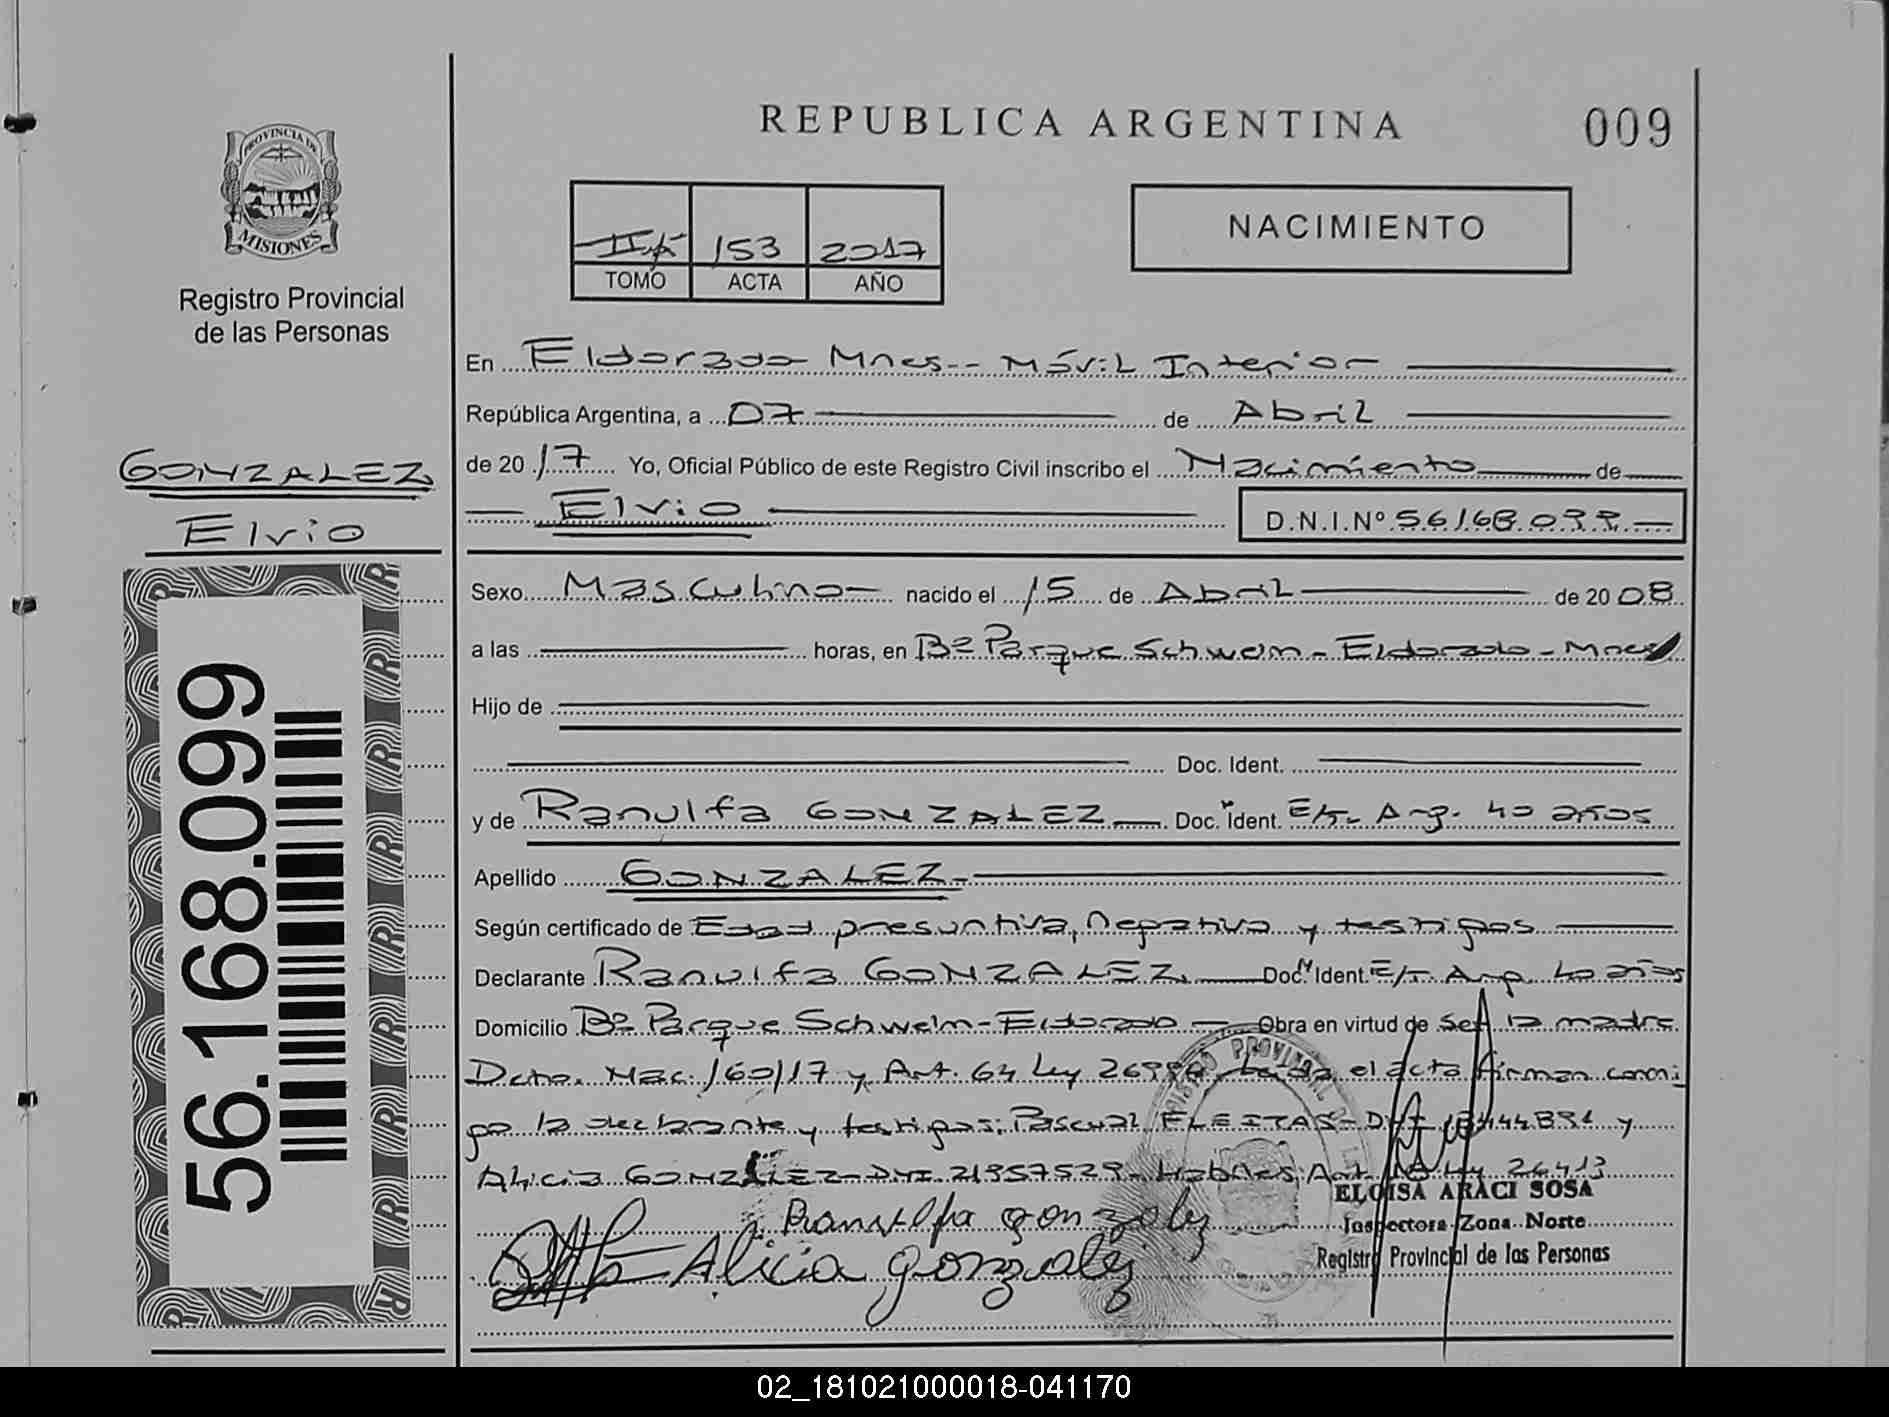 REPUBLICA ARGENTINA
009
PROVINCIA DE
MISIONES
Registro Provincial
de las Personas
153 2017
TOMO ACTA AÑO
NACIMIENTO
En Eldorado Mnes-- Móvil Interior
República Argentina, a 07 de Abril
GONZALEZ
Elvio
de 20 17 Yo, Oficial Público de este Registro Civil inscribo el Nacimiento de
Elvio D.N.I.Nº 56168.099
Sexo Masculino nacido el 15 de Abril de 20 08
a las horas, en Bº Parque Schwelm - Eldorado - Mnes
Hijo de
Doc. Ident.
y de Ranulfa GONZALEZ Doc. Ident. E/T. Arg. 40 años
Apellido GONZALEZ
Según certificado de Edad presuntiva, Negativa y testigos
Declarante Ranulfa GONZALEZ Doc. Ident. E/T. Arg. 40 años
Domicilio Bº Parque Schwelm - Eldorado Obra en virtud de Ser la madre.
Dcto. Nac. 160/17 y Art. 64 Ley el acta firman conmi
go la declarante y testigos: Pascual FLEITAS- y
Alicia GONZALEZ- DNI 21957529- Habiles: Art. Ley 26413
ELOISA ARACI SOSA
Ranulfa gonzalez
Inspectora Zona Norte
Alicia gonzalez
Registro Provincial de las Personas
56.168.099
02_181021000018-041170